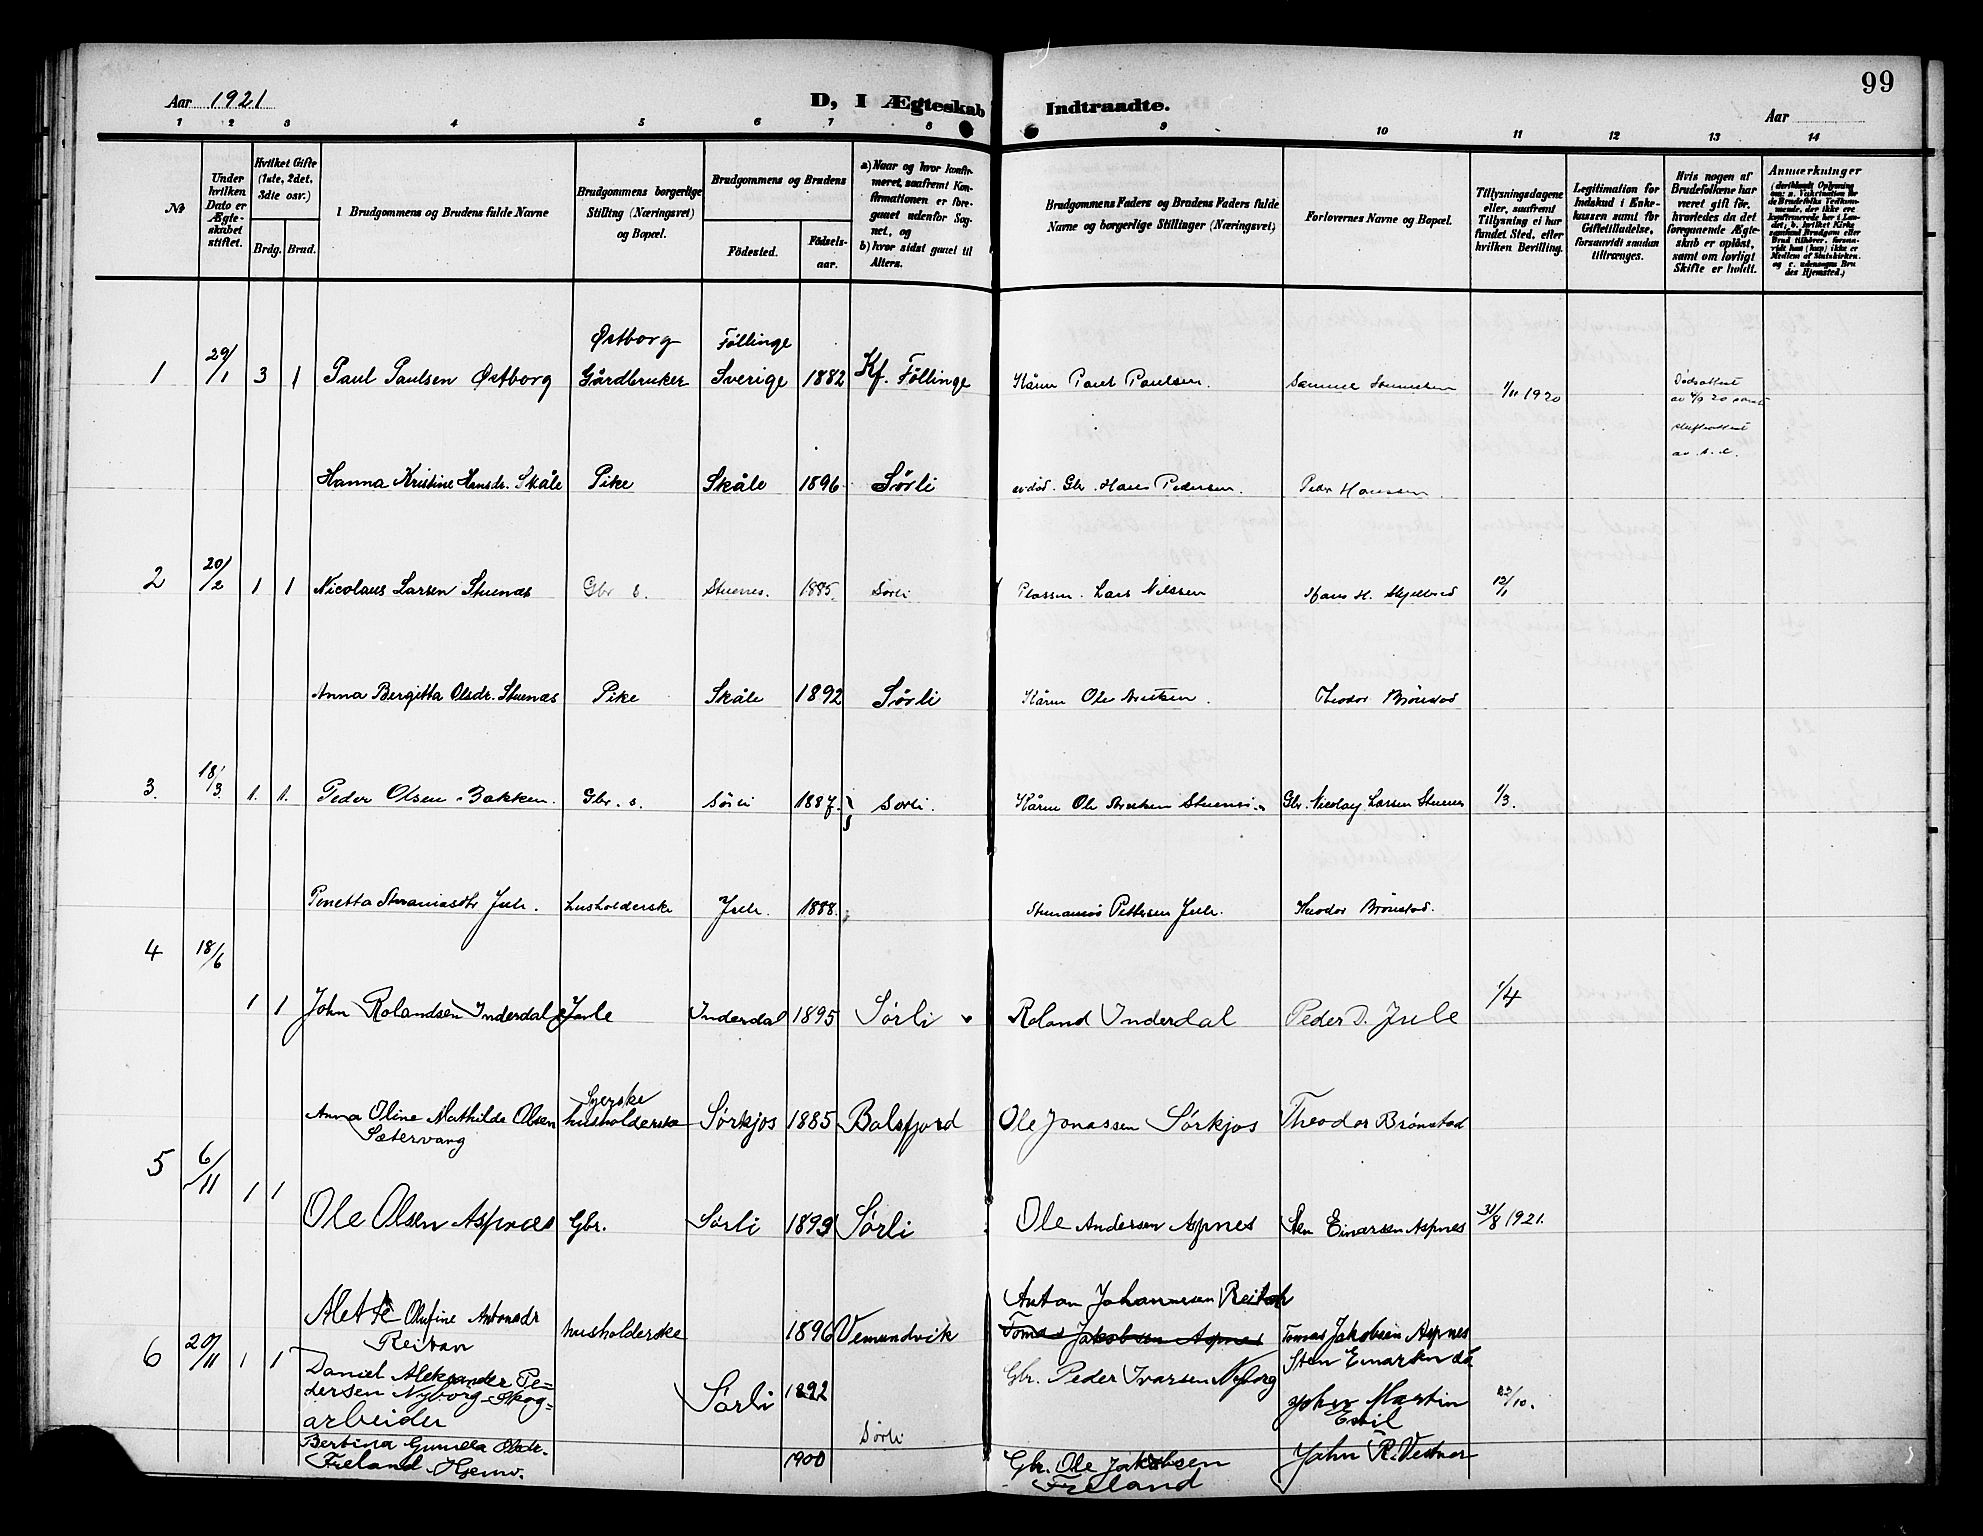 99
Aar 1921
D, I Ægteskab Indtraadte.
Aar
1 2 3 4 5 6 7 8 9 10 11 12 13 14
№
Under hvilken Dato er Ægteskabet stiftet.
Hvilket Gifte (1ste, 2det, 3die osv.)
Brdg. Brud.
Brudgommens og Brudens fulde Navne
Brudgommens borgerlige Stilling (Næringsvei) og Bopæl.
Brudgommens og Brudens
Fødested. Fødselsaar.
a) Naar og hvor konfirmeret, saafremt Konfirmationen er foregaaet udenfor Sognet, og
b) hvor sidst gaaet til Alters.
Brudgommens Faders og Brudens Faders fulde Navne og borgerlige Stillinger (Næringsvei)
Forlovernes Navne og Bopæl.
Tillysningsdagene eller, saafremt Tillysning ei har fundet Sted, efter hvilken Bevilling.
Legitimation for Indskud i Enkekassen samt for Giftetilladelse, forsaavidt saadan tiltrænges.
Hvis nogen af Brudefolkene har været gift før, hvorledes da det foregaaende Ægteskab er opløst, samt om lovligt Skifte er holdt.
Anmærkninger
1 29/1 3 1 Paul Paulsen Østborg Østborg Gårdbruker Föllinge Sverige 1882 Kf. Föllinge Kårm Paul Paulsen. 1/11 1920
Hanna Kristine Hansdr. Skåle Pike Skåle 1896 Sørli avdød. Gbr. Hans Pedersen. Peder Hanssen
2 20/2 1 1 Nicolaus Larsen Stuenæs Gbr s. Stuenes. 1885. Sørli Plassm. Lars Nilssen Hans H. Skjelbred 12/1
Anna Bergitta Olsdr. Stuenæs Pike Skåle 1892 Sørli Kårm Ole Theodor Brønstad
3. 18/3 1. 1. Peder Olsen Bakken. Gbr. s. Sörli 1887. Sörli. Kårm Ole Gbr. Nicolay Larsen Stuenes 1/3.
Penetta Jule. husholderske Jule. 1888. Pettersen Jule. Theodor Brønstad.
4 18/6 1 1 John Rolandsen Inderdal Jule Inderdal 1895 Sørli Roland Inderdal Peder D. Jule 1/4
Anna Oline Mathilde Olsen Sætervang Syerske husholderske Sørkjos 1885 Balsfjord Ole Jonassen Sørkjos Theodor Brønstad
5 6/11 1 1 Ole Olsen Aspnæs Gbr. Sørli 1893 Sørli Ole Andersen Aspnes Sten Einarsen Aspnes 31/8 1921.
Mette Olufine Antonsdr Reitan husholderske 1896 Vemundvik Anton Johannesen Reitan
Tomas Jakobsen Aspnes Tomas Jakobsen Aspnes
Sten Einarsen do
6 20/11 1 1 Daniel Aleksander Pedersen Nyborg Skogarbeider Sørli 1892 Gbr. Peder Ivarsen Nyborg John Martin Estil 23/10.
Sørli
Bertina Gunella Olsdr. Freland Hjemv. 1900 Gbr. Ole Jakobsen Freland John R. Vestnor